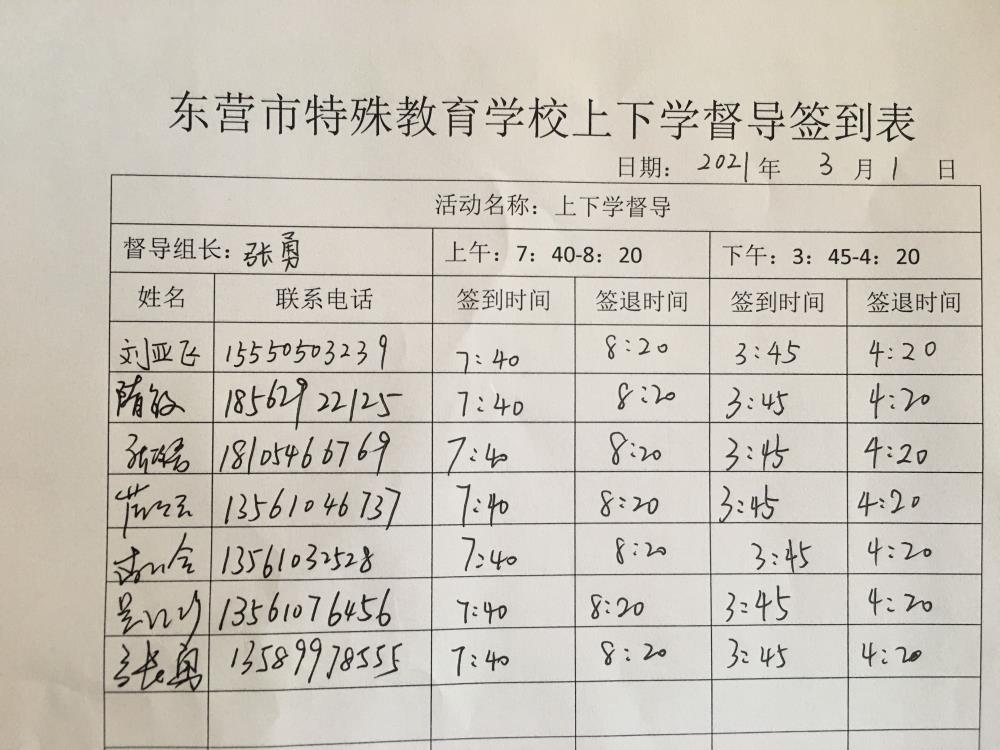 东营市特殊教育学校上下学督导签到表
日期： 2021 年 3 月 1 日
活动名称：上下学督导
督导组长：张勇 上午：7：40-8：20 下午：3：45-4：20
姓名 联系电话 签到时间 签退时间 签到时间 签退时间
刘亚飞 15550503239 7:40 8:20 3:45 4:20
隋敏 18562922125 7:40 8:20 3:45 4:20
18105466769 7:40 8:20 3:45 4:20
13561046737 7:40 8:20 3:45 4:20
13561032528 7:40 8:20 3:45 4:20
13561076456 7:40 8:20 3:45 4:20
张勇 13589978555 7:40 8:20 3:45 4:20